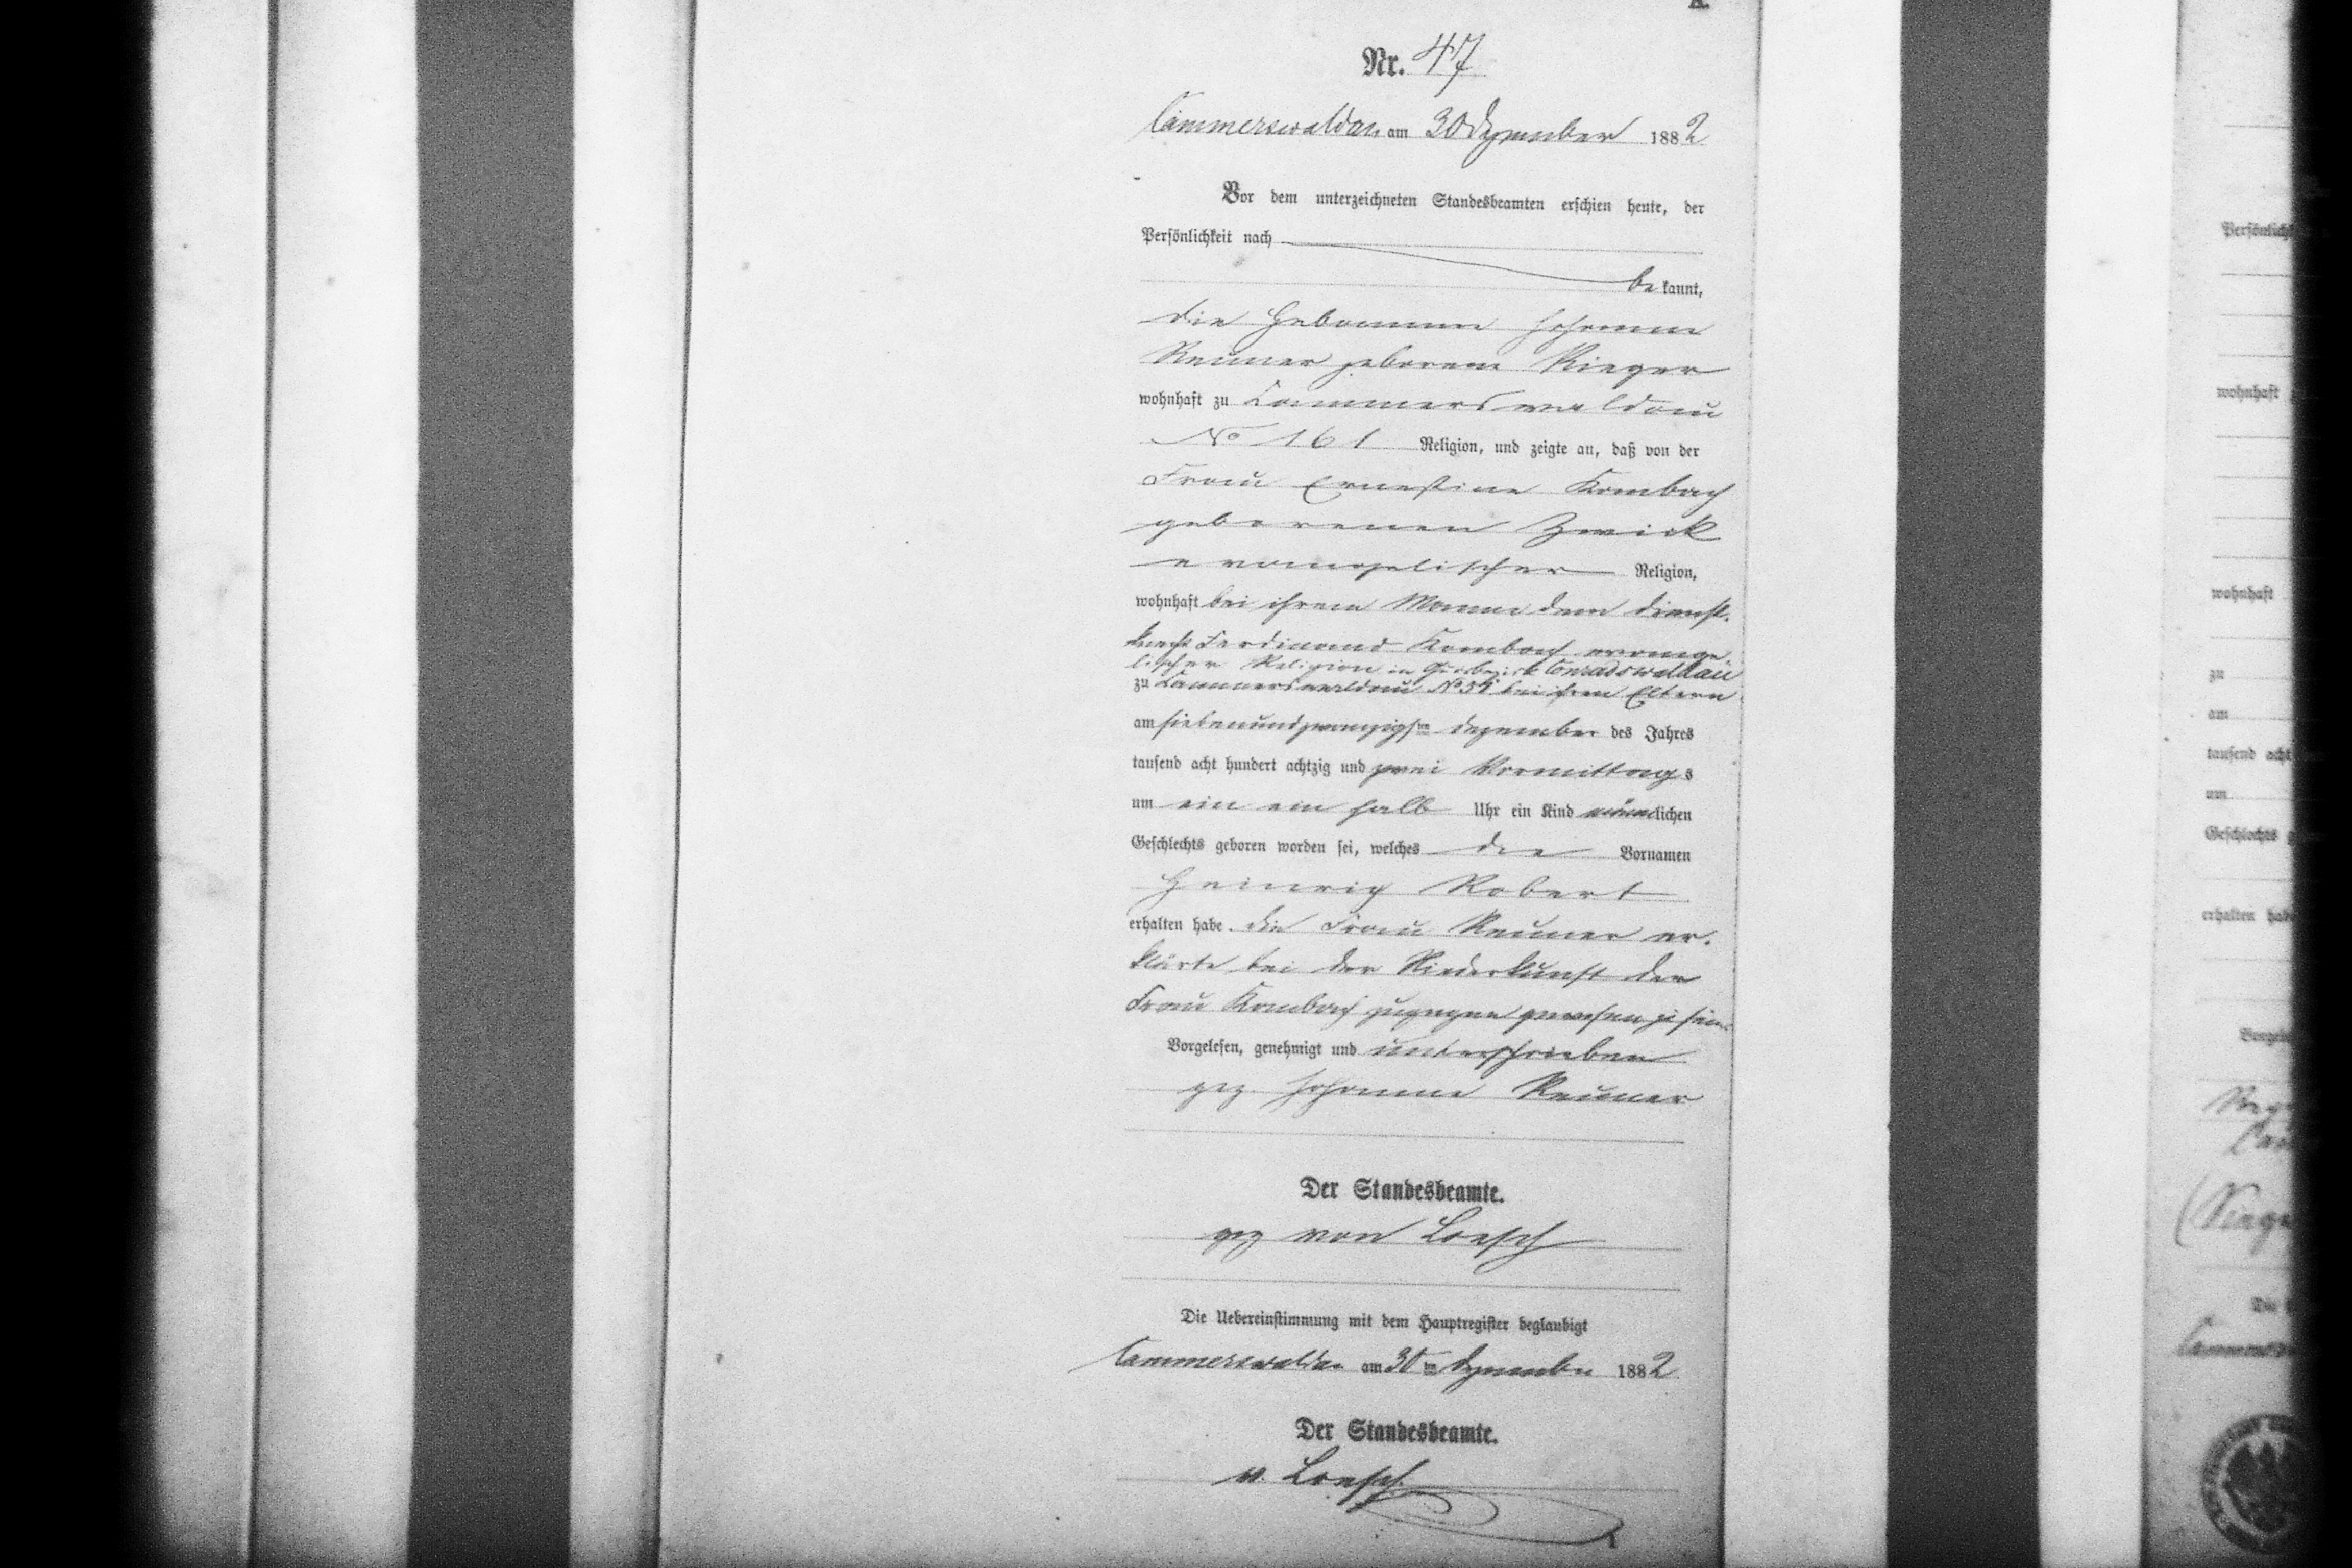 A.
Nr. 47
Cammerswaldau am 30 Dezember 1882
Vor dem unterzeichneten Standesbeamten erschien heute, der
Persönlichkeit nach
be kannt,
die Hebamme Johanne
Renner geborene Rieger
wohnhaft zu Cammerswaldau
No 161 Religion, und zeigte an, daß von der
Frau Ernestine Kombach
geborenen Zwick
evangelischer Religion,
wohnhaft bei ihrem Manne dem Dienst-
knecht Ferdinand Kombach evange
lischer Religion in Gutsbezirk Conradswaldau
zu Cammerswaldau No 54 bei ihren Eltern
am siebenundzwanzigsten Dezember des Jahres
tausend acht hundert achtzig und zwei Vormittags
um ein ein halb Uhr ein Kind männlichen
Geschlechts geboren worden sei, welches die Vornamen
Heinrich Robert
erhalten habe. Die Frau Renner er-
klärte bei der Niederkunft der
Frau Kombach zugegen gewesen zu sein.
Vorgelesen, genehmigt und unterschrieben
gez Johanne Renner
Der Standesbeamte.
gez von Loesch
Die Uebereinstimmung mit dem Hauptregister beglaubigt
Cammerswaldau am 30ten Dezember 1882
Der Standesbeamte.
v. Loesch
Persönlich
wohnhaft
wohnhaft
zu
am
tausend acht
um
Geschlechts
erhalten habe